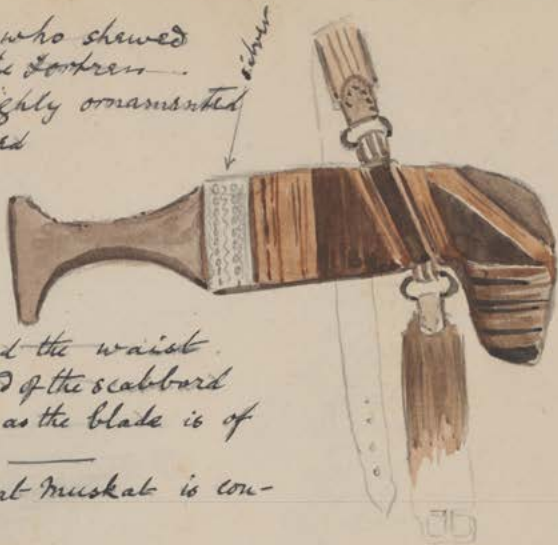 who shewed
Fortress
ighly ornamented
ed
silver
d the waist
d of the scabbord
as the blade is of
at Muskat is con-